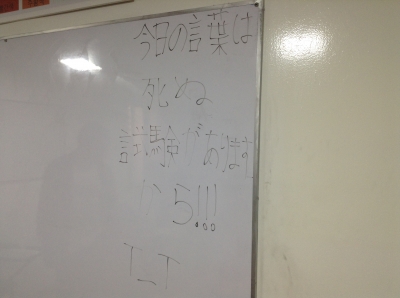 今日の言葉は
死ぬ
試験がありますから!!!
T_T